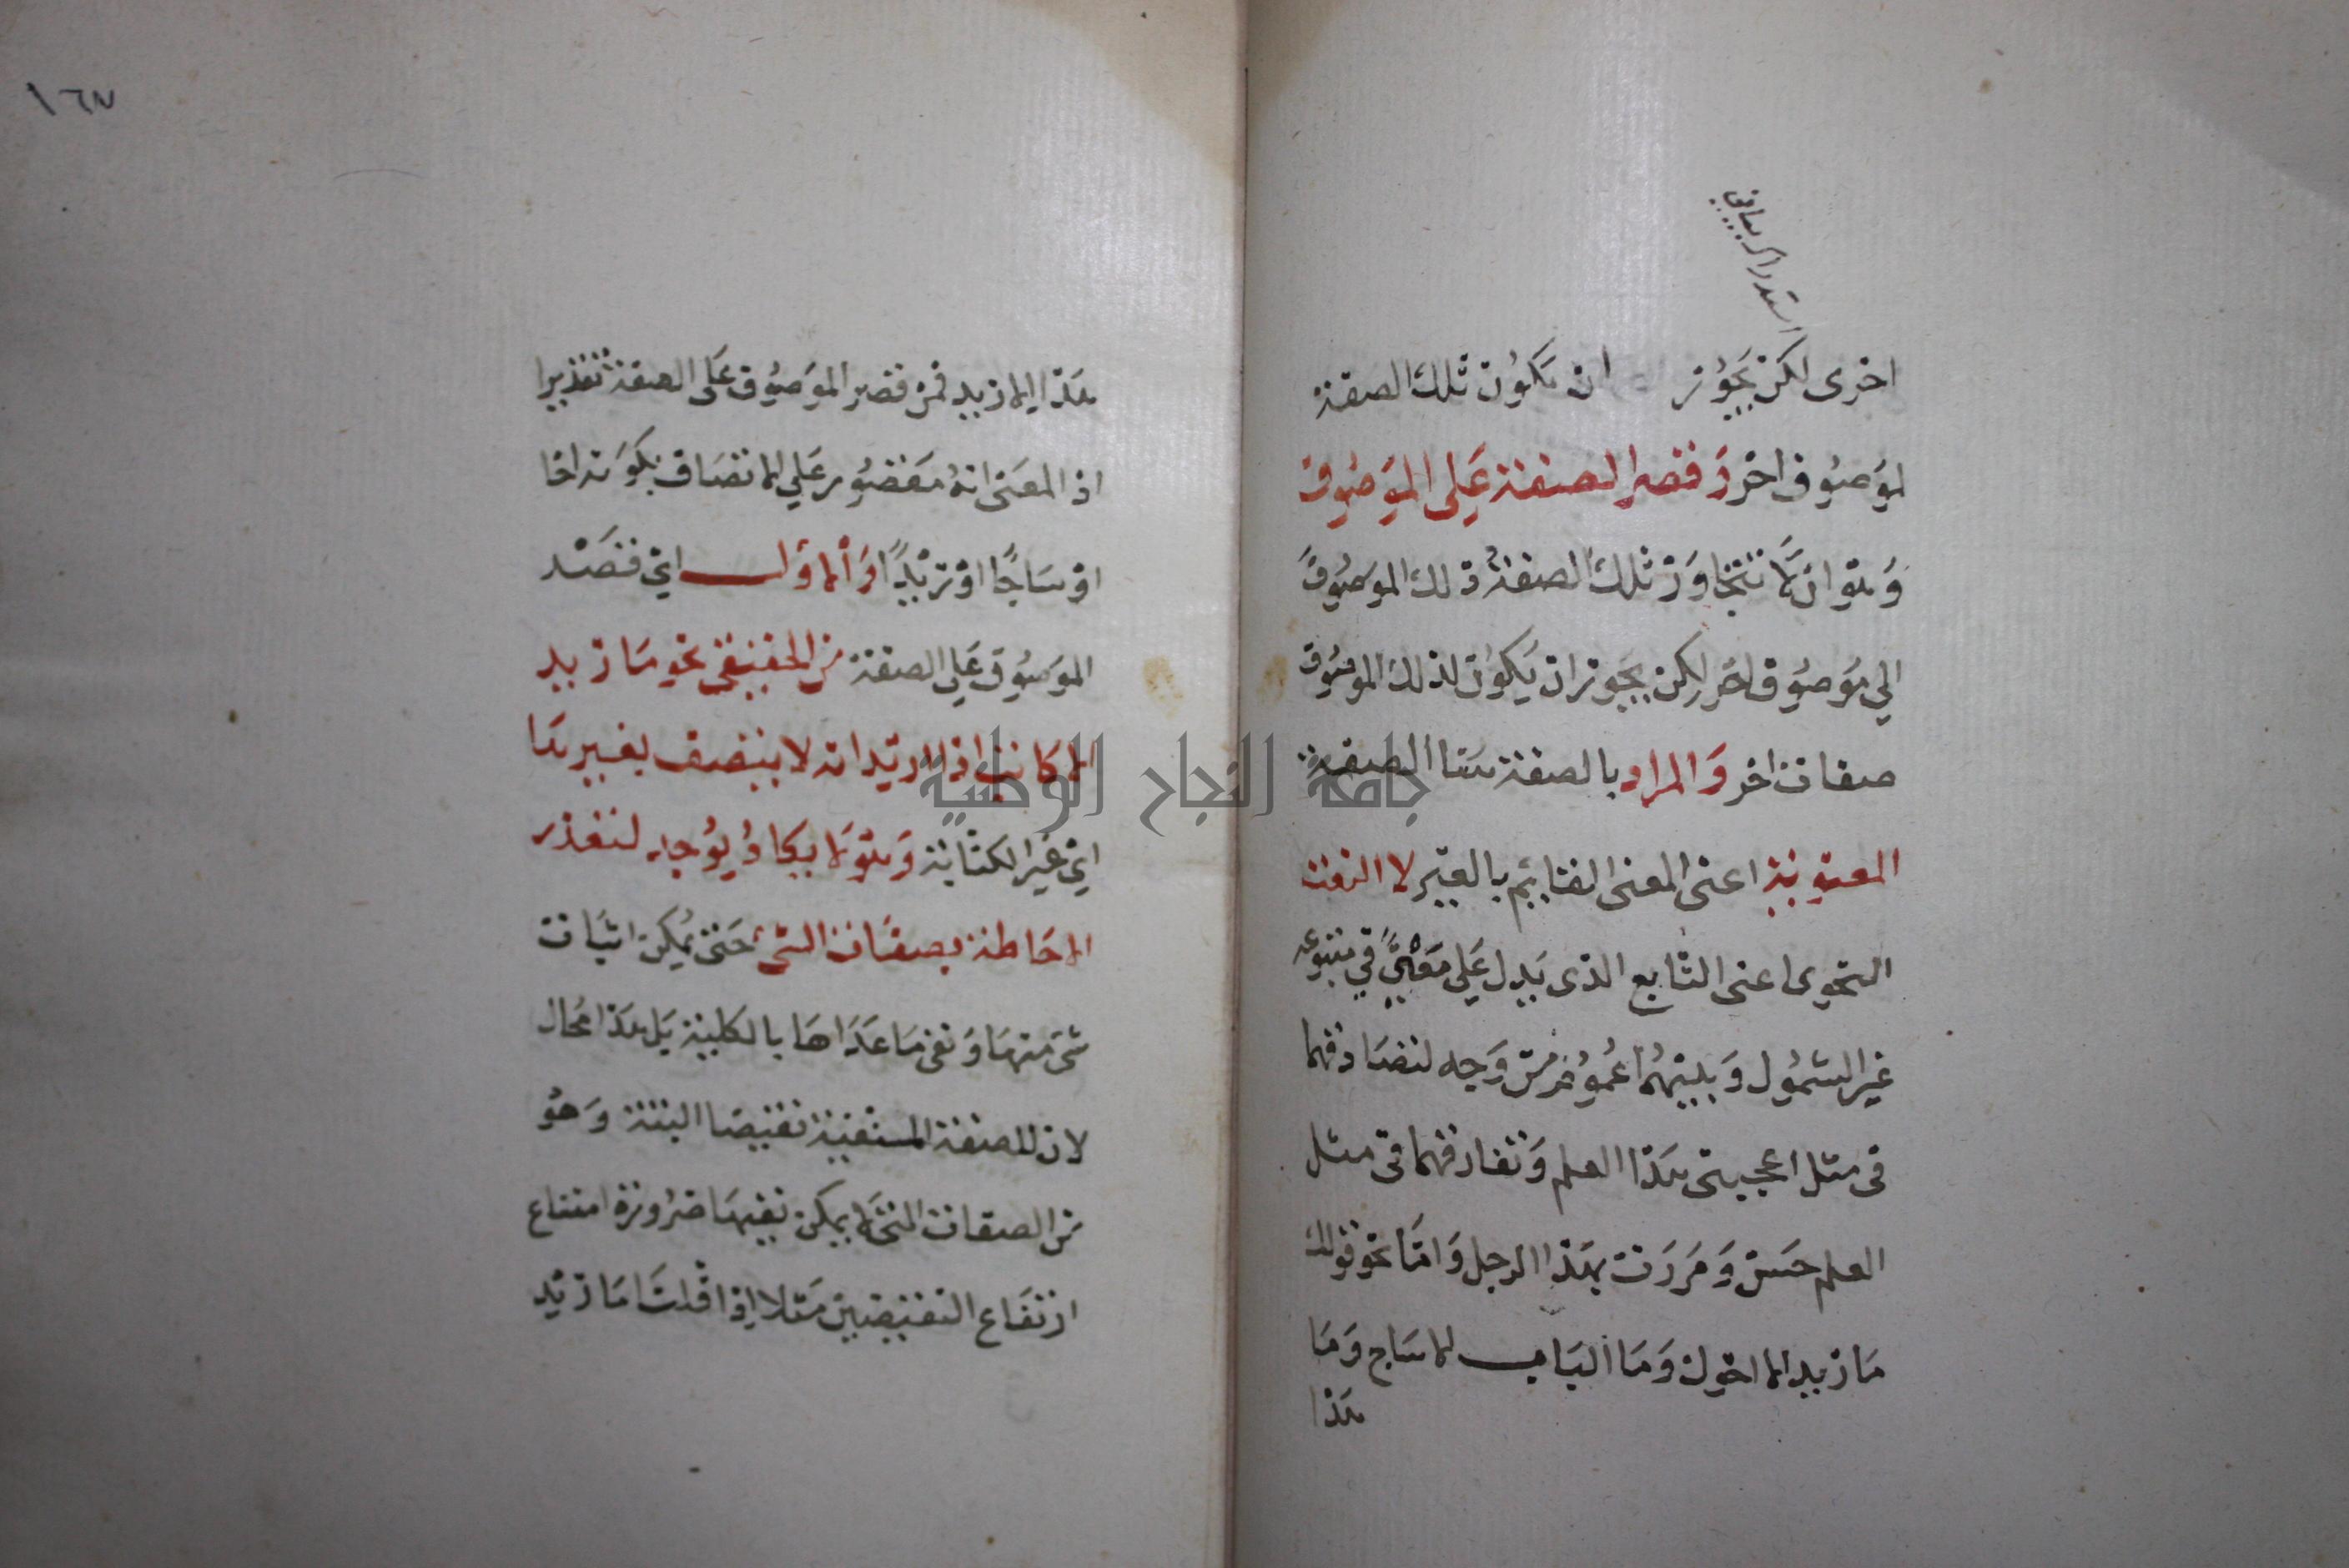 استدراك بياني
اخرى لكن يجوز ان تكون تلك الصفة
لموصوف اخر وقصر الصفة على الموصوف
وهو ان لا تتجاوز تلك الصفة ذلك الموصوف
الي موصوف اخر لكن يجوز ان يكون لذلك الموصوف
صفات اخر والمراد بالصفة هنا الصفة
المعنوية اعنى المعنى القايم بالغير لا النعت
النحوى اعنى التابع الذى يدل على معنى في متبوعه
غير الشمول وبينهما عموم من وجه لتصادقهما
فى مثل اعجبني هذا العلم وتفارقهما فى مثل
العلم حسن ومررت بهذا الرجل واما نحو قولك
ما زيد الا اخوك وما الباب الا ساج وما
هذا
١٦٧
هذا الا زيد فمن قصر الموصوف على الصفة تقديرا
اذ المعنى انه مقصور علي الاتصاف بكونه اخا
او ساجا او زيدا والاول اي قصد
الموصوف علي الصفة من الحقيقى نحو ما زيد
الا كاتب اذا اريد انه لا يتصف بغيرها
اي غير الكتابة وهو لا يكاد يوجد لتعذر
الاحاطة بصفات الشئ حتى يمكن اثبات
شئ منها ونفى ما عداها بالكلية بل هذا محال
لان للصفة المنفية نقيضا البتة وهو
من الصفات التى لا يمكن نفيها ضرورة امتناع
ارتفاع النقيضين مثلا اذا قلت ما زيد
جامعة النجاح الوطنية